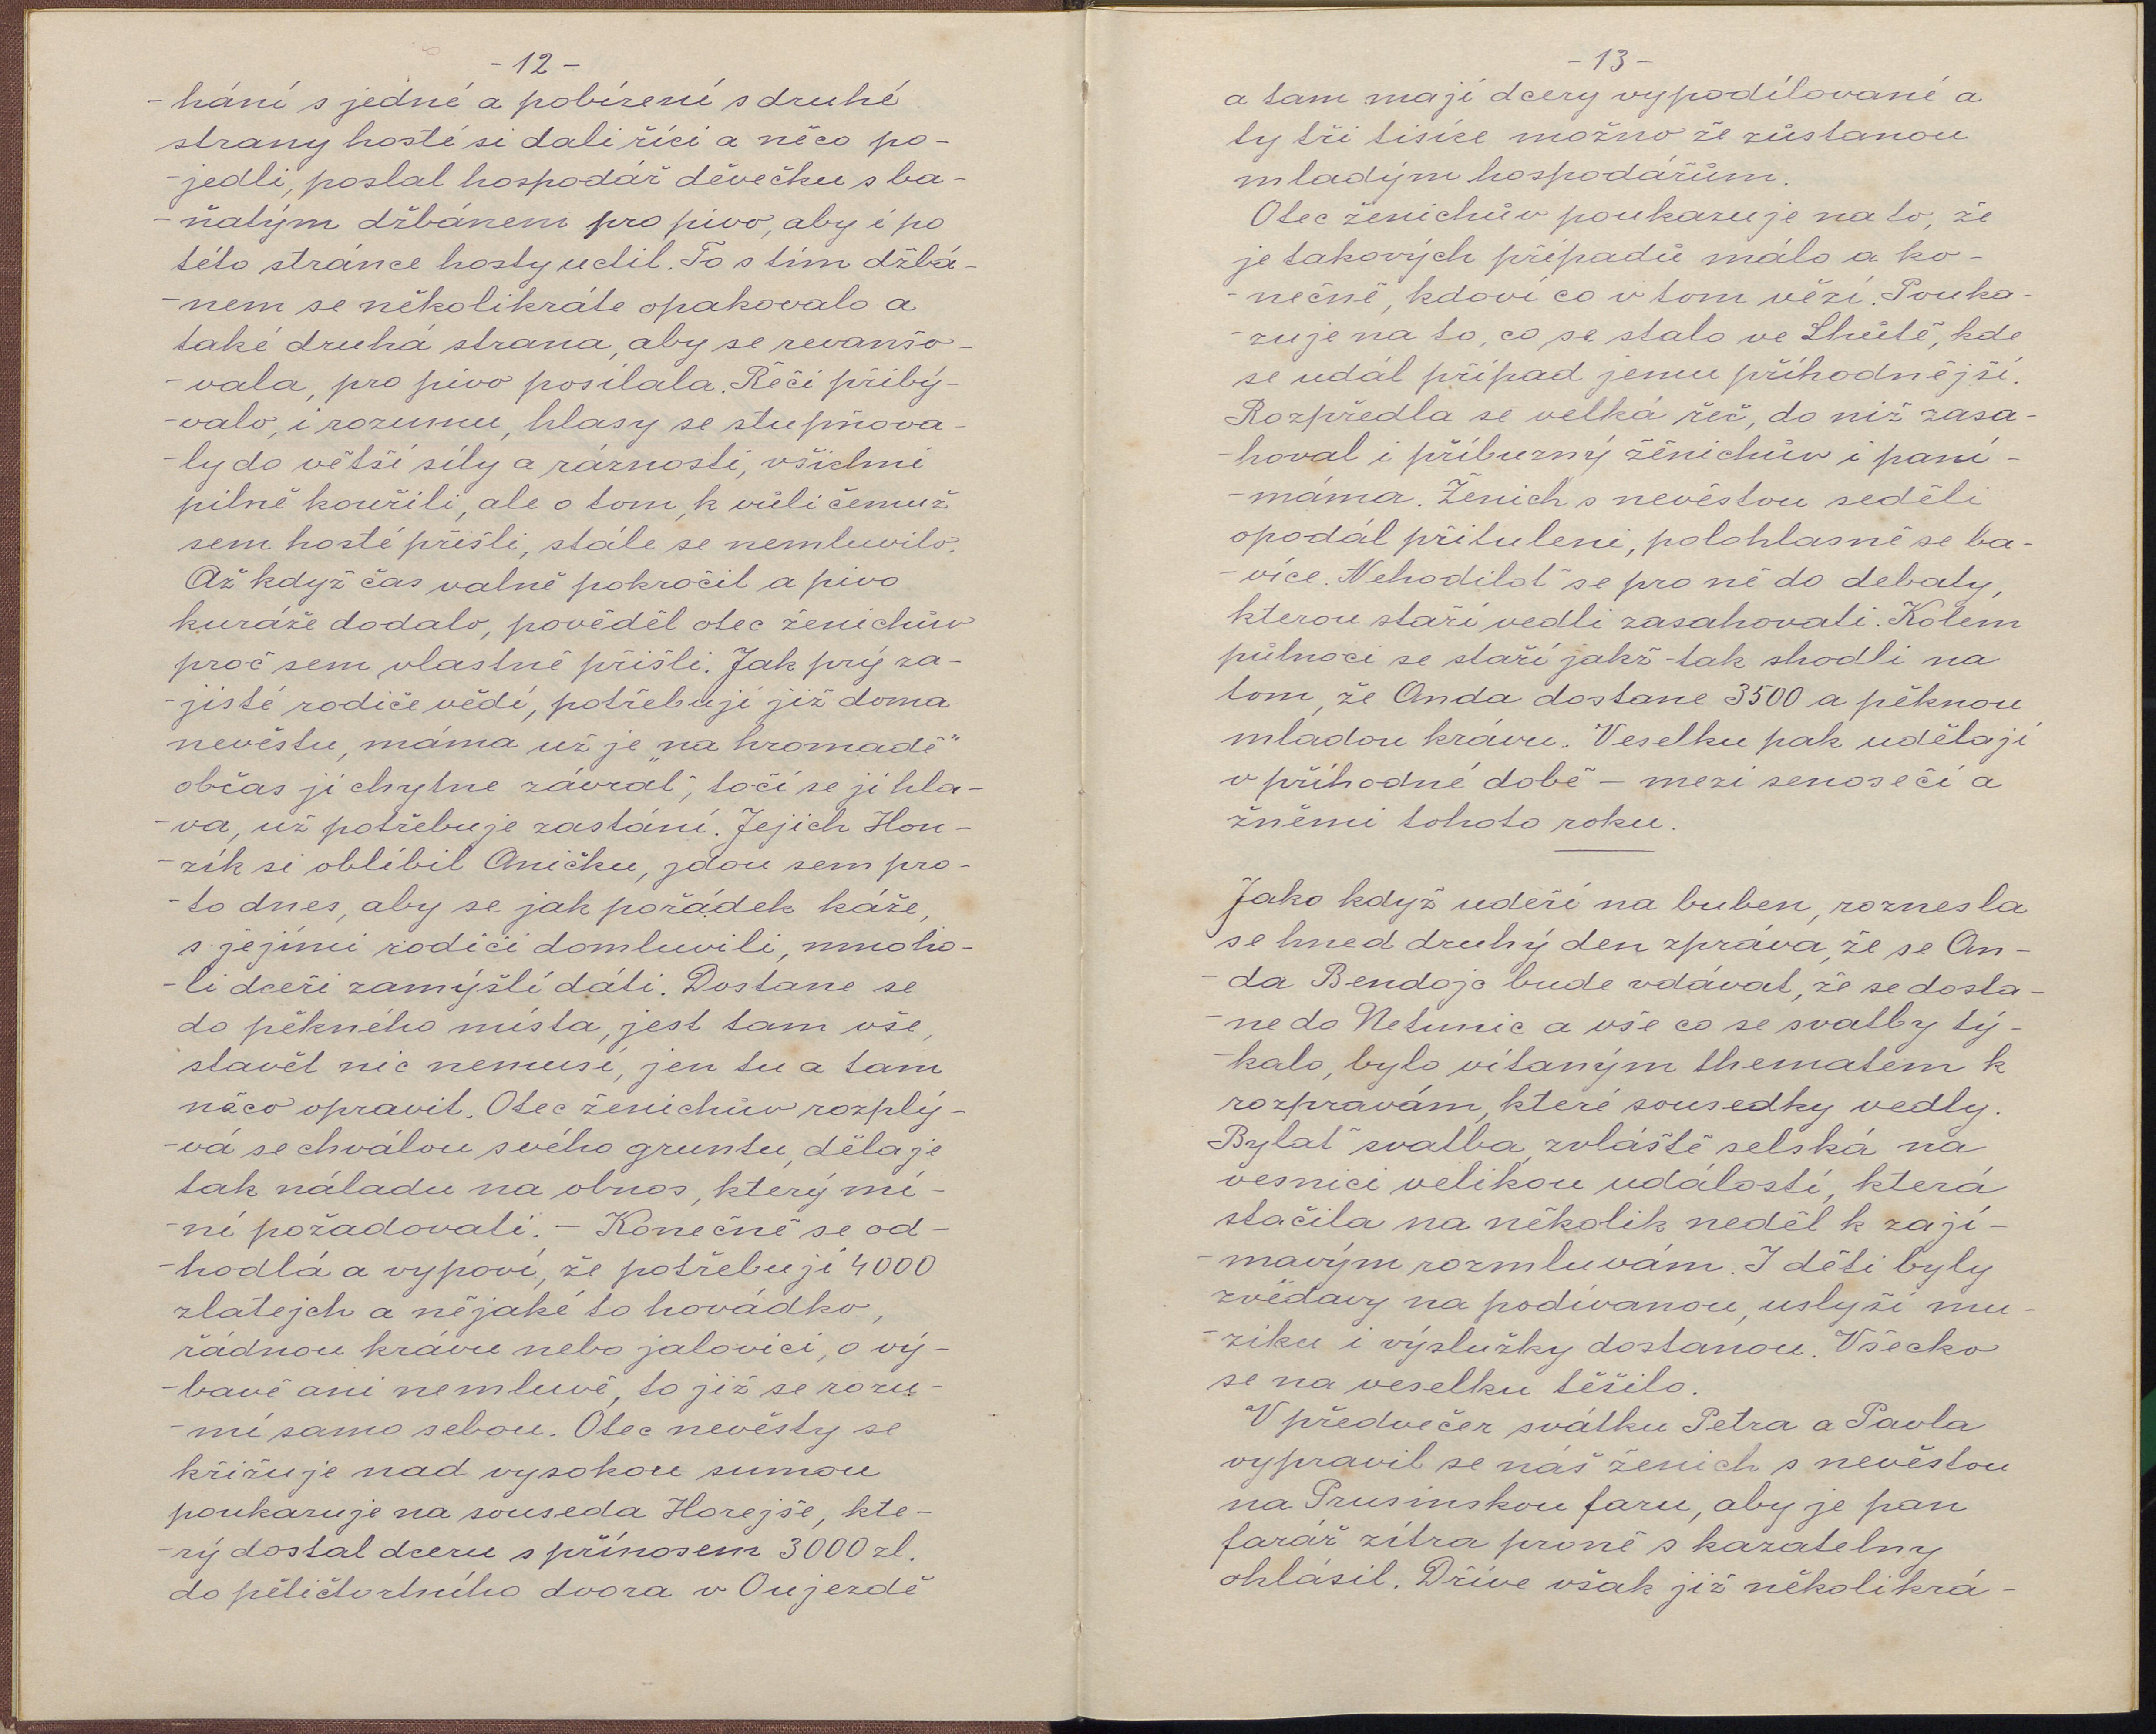 - 12 -
-hání s jedné a pobízení s druhé
strany hosté si dali říci a něco po-
-jedli, poslal hospodář děvečku s ba-
-ňatým džbánem pro pivo, aby i po
této stránce hosty uctil. To s tím džbá-
-nem se několikráte opakovalo a
také druhá strana, aby se revanšo-
-vala, pro pivo posílala. Řečí přibý-
-valo, i rozumu, hlasy se stupňova-
-ly do větší síly a ráznosti, všichni
pilně kouřili, ale o tom, k vůli čemuž
sem hosté přišli, stále se nemluvilo.
Až když čas valně pokročil a pivo
kuráže dodalo, pověděl otec ženichův
proč sem vlastně přišli. Jak prý za-
-jisté rodiče vědí, potřebují již doma
nevěstu, máma už je „na hromadě"
občas jí chytne „závrať", točí se jí hla-
-va, už potřebuje zastání. Jejich Hon-
-zík si oblíbil Aničku, jdou sem pro-
-to dnes, aby se jak pořádek káže,
s jejími rodiči domluvili, mnoho-
-li dceři zamýšlí dáti. Dostane se
do pěkného místa, jest tam vše,
stavět nic nemusí, jen tu a tam
něco opravit. Otec ženichův rozplý-
-vá se chválou svého gruntu, dělaje
tak náladu na obnos, který mí-
-ní požadovati. – Konečně se od-
-hodlá a vypoví, že potřebují 4000
zlatejch a nějaké to hovádko,
řádnou krávu nebo jalovici, o vý-
-bavě ani nemluvě, to již se rozu-
-mí samo sebou. Otec nevěsty se
křižuje nad vysokou sumou
poukazuje na souseda Horejše, kte-
-rý dostal dceru s přínosem 3000 zl.
do pětičtvrtního dvora v Oujezdě
- 13 -
a tam mají dcery vypodílované a
ty tři tisíce možno že zůstanou
mladým hospodářům.
Otec ženichův poukazuje na to, že
je takových případů málo a ko-
-nečně, kdoví co v tom vězí. Pouka-
-zuje na to, co se stalo ve Lhůtě, kde
se udál případ jemu příhodnější.
Rozpředla se velká řeč, do niž zasa-
-hoval i příbuzný ženichův i paní-
-máma. Ženich s nevěstou seděli
opodál přituleni, polohlasně se ba-
-více. Nehodiloť se pro ně do debaty,
kterou staří vedli zasahovati. Kolem
půlnoci se staří jakž-tak shodli na
tom, že Anda dostane 3500 a pěknou
mladou krávu. Veselku pak udělají
v příhodné době – mezi senosečí a
žněmi tohoto roku.
Jako když udeří na buben, roznesla
se hned druhý den zpráva, že se An-
-da Bendojc bude vdávat, že se dosta-
-ne do Netunic a vše co se svatby tý-
-kalo, bylo vítaným thematem k
rozpravám, které sousedky vedly.
Bylať svatba, zvláště selská na
vesnici velikou událostí, která
stačila na několik neděl k zají-
-mavým rozmluvám. I děti byly
zvědavy na podívanou, uslyší mu-
-ziku i výslužky dostanou. Všecko
se na veselku těšilo.
V předvečer svátku Petra a Pavla
vypravil se náš ženich s nevěstou
na Prusinskou faru, aby je pan
farář zítra prvně s kazatelny
ohlásil. Dříve však již několikrá-